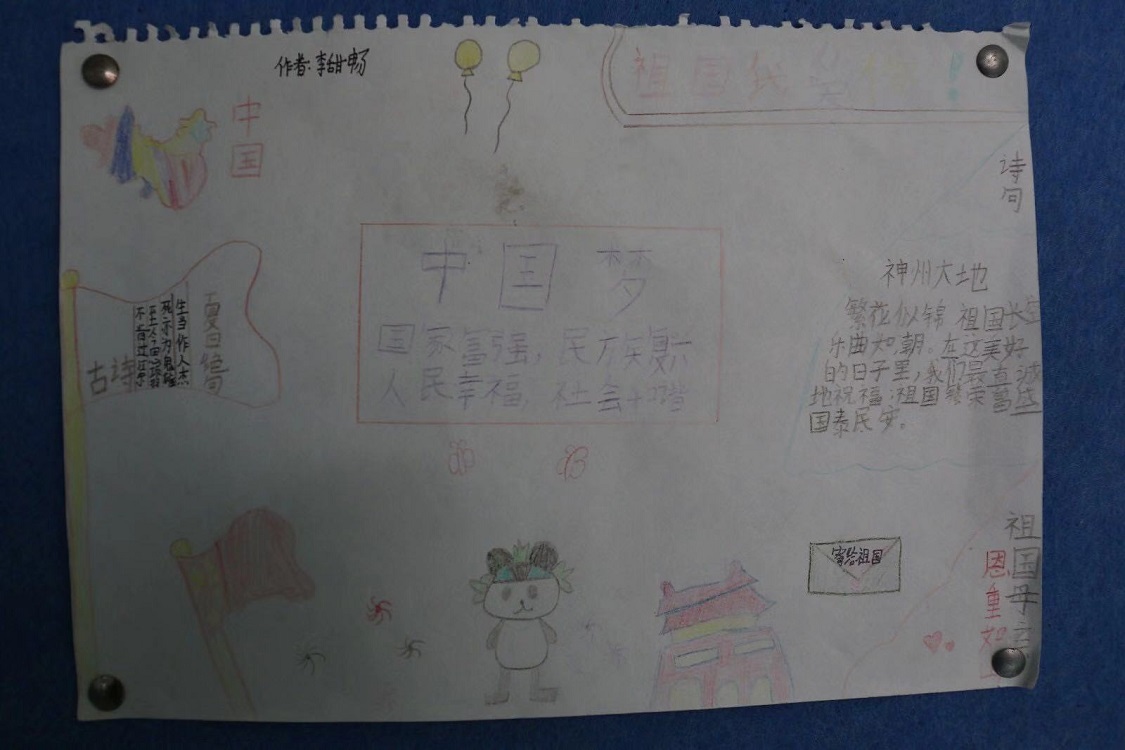 作者:李甜畅
祖国我
中国
诗句
中国梦
国家富强,民族复兴
人民幸福,社会和谐
夏日绝句
生当作人杰
死亦为鬼雄
至今思项羽
不肯过江东
古诗
神州大地
繁花似锦 祖国长空
乐曲如潮。在这美好
的日子里,我们最真诚
地祝福:祖国繁荣昌盛
国泰民安。
寄给祖国
祖国母亲
恩重如山